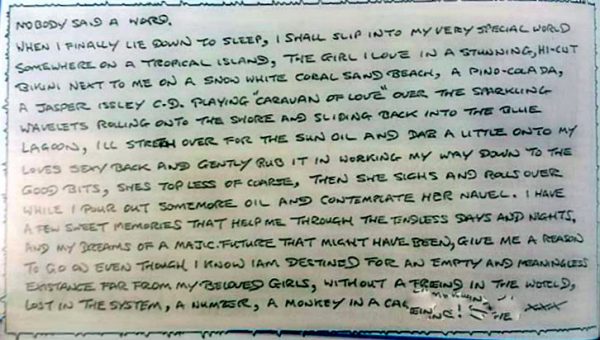 NOBODY SAID A WORD.
WHEN I FINALLY LIE DOWN TO SLEEP, I SHALL SLIP INTO MY VERY SPECIAL WORLD
SOMEWHERE ON A TROPICAL ISLAND, THE GIRL I LOVE IN A STUNNING, HI-CUT
BIKINI NEXT TO ME ON A SNOW WHITE CORAL SAND BEACH, A PINO-COLADA,
A JASPER ISSLEY C.D. PLAYING "CARAVAN OF LOVE" OVER THE SPARKLING
WAVELETS ROLLING ONTO THE SHORE AND SLIDING BACK INTO THE BLUE
LAGOON, ILL STRETH OVER FOR THE SUN OIL AND DAB A LITTLE ONTO MY
LOVES SEXY BACK AND GENTLY RUB IT IN WORKING MY WAY DOWN TO THE
GOOD BITS, SHES TOPLESS OF COARSE, THEN SHE SIGHS AND ROLLS OVER
WHILE I POUR OUT SOMEMORE OIL AND CONTEMPLATE HER NAVEL. I HAVE
A FEW SWEET MEMORIES THAT HELP ME THROUGH THE ENDLESS DAYS AND NIGHTS,
AND MY DREAMS OF A MAJIC.FUTURE THAT MIGHT HAVE BEEN, GIVE ME A REASON
TO GO ON EVEN THOUGH I KNOW IAM DESTINED FOR AN EMPTY AND MEANINGLESS
EXISTANCE FAR FROM MY BELOVED GIRLS, WITHOUT A FREIND IN THE WORLD,
LOST IN THE SYSTEM, A NUMBER, A MONKEY IN A XXX